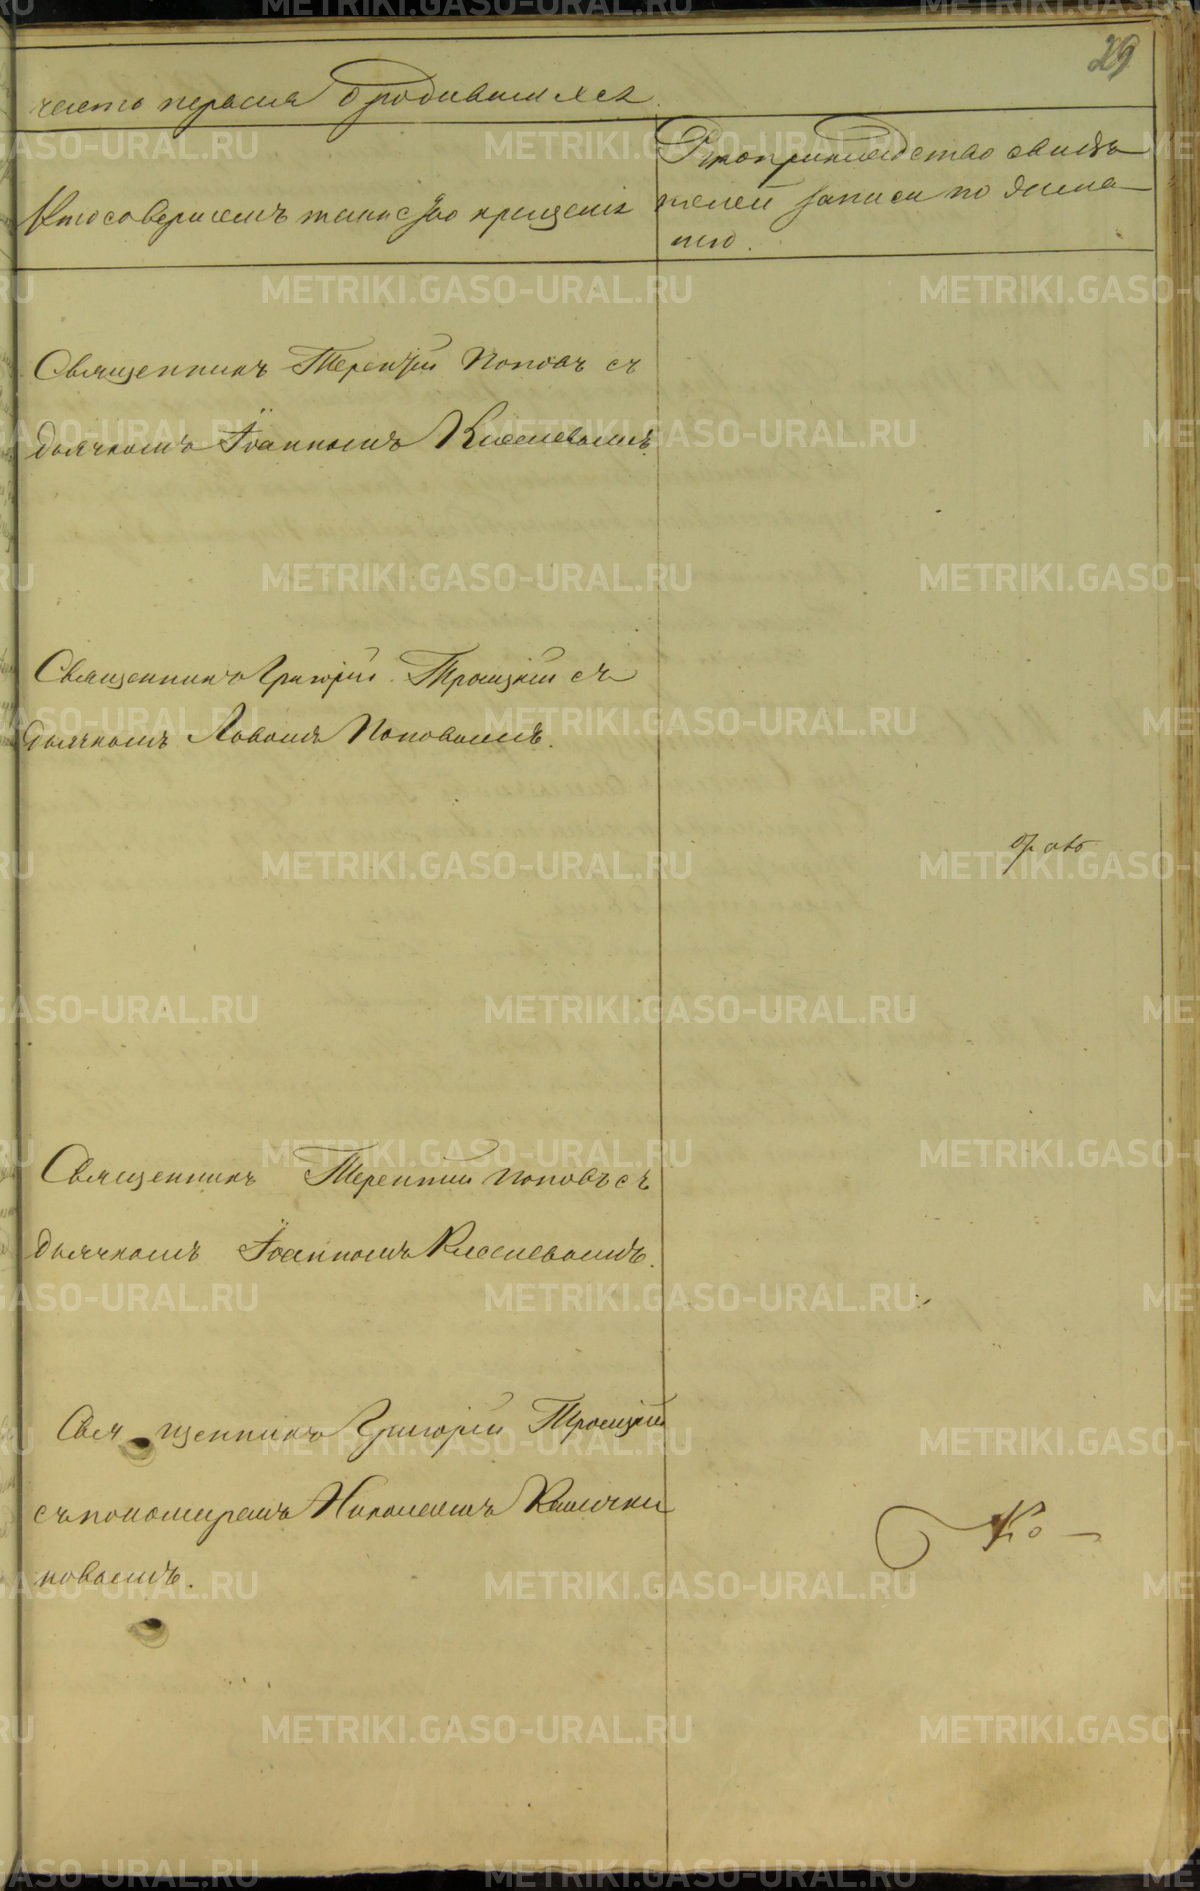 29
часть первая о родившихся.
Кто совершалъ таинство крещенія
Рукоприкладство свидѣ-
телей записи по жела-
нію.
Священникъ Терентій Поповъ съ
дьячкомъ Іоанномъ Киселевымъ.
Священникъ Григорій Троицкій съ
дьячкомъ Львомъ Поповымъ.
Священникъ Терентій Поповъ съ
дьячкомъ Іоанномъ Киселевымъ.
Священникъ Григорій Троицкій
съ пономаремъ Николаемъ
новымъ.
Ко
METRIKI.GASO-URAL.RU